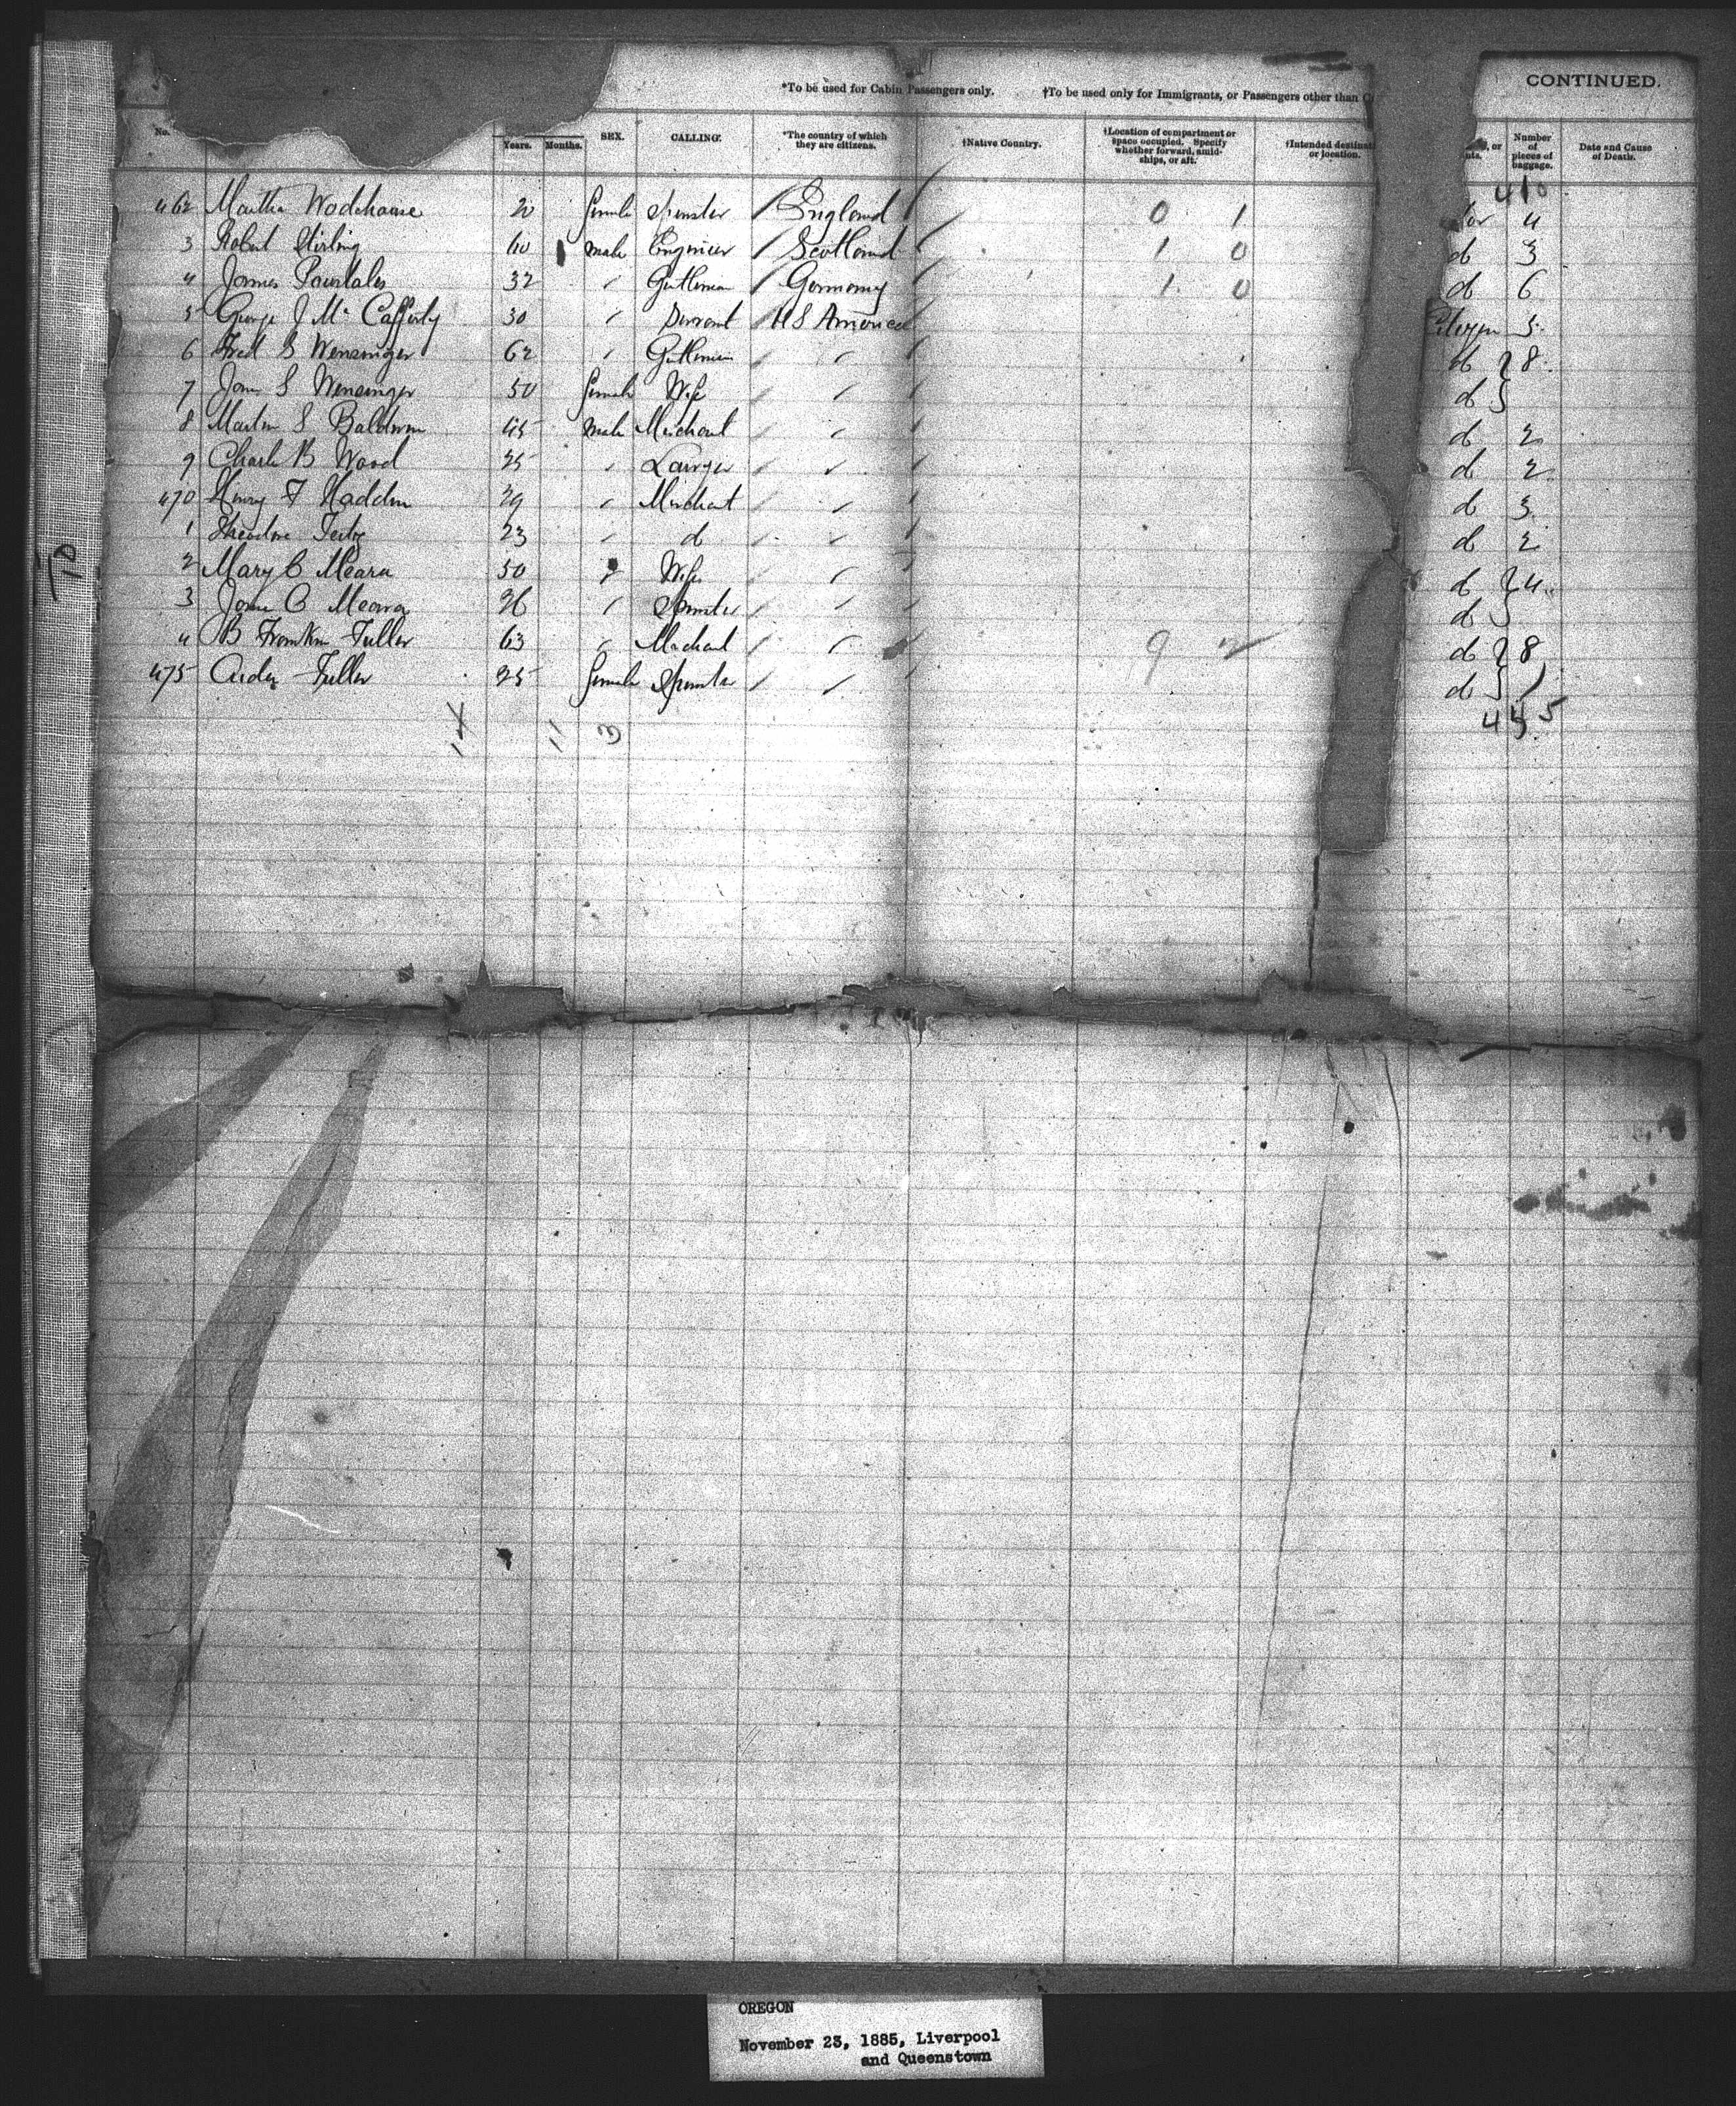 CONTINUED.
*To be used for Cabin Passengers only. †To be used only for Immigrants, or Passengers other than
No. Years. Months. SEX. CALLING. *The country of which they are citizens. †Native Country. †Location of compartment or space occupied. Specify whether forward, amidships, or aft. †Intended or location. Number of pieces of baggage. Date and Cause of Death.
410
462 Martha Wodehouse 20 female Spinster England 0 1 4
3 Robert Stirling 40 male Engineer Scotland 1 0 do 3
4 James Pourtales 32 Gentleman Germany 1 0 do 6
5 George J Mc Cafferty 30 Servant U S America Citizen 5
6 Fred S Wensinger 62 Gentleman do } 8
7 Jane S Wensinger 50 female Wife do }
8 Martin S Baldwin 45 male Merchant do 2
9 Charles B Wood 35 Lawyer do 2
470 Henry F Hadden 29 Merchant do 3
1 Theodore 23 do do 2
2 Mary C Meara 50 Wife do } 4
3 Jane C Meara 26 Spinster do }
4 B Franklin Fuller 63 Merchant 9 2 do } 8
475 Fuller 25 female Spinster do }
14 11 3 445
OREGON
November 23, 1885, Liverpool
and Queenstown